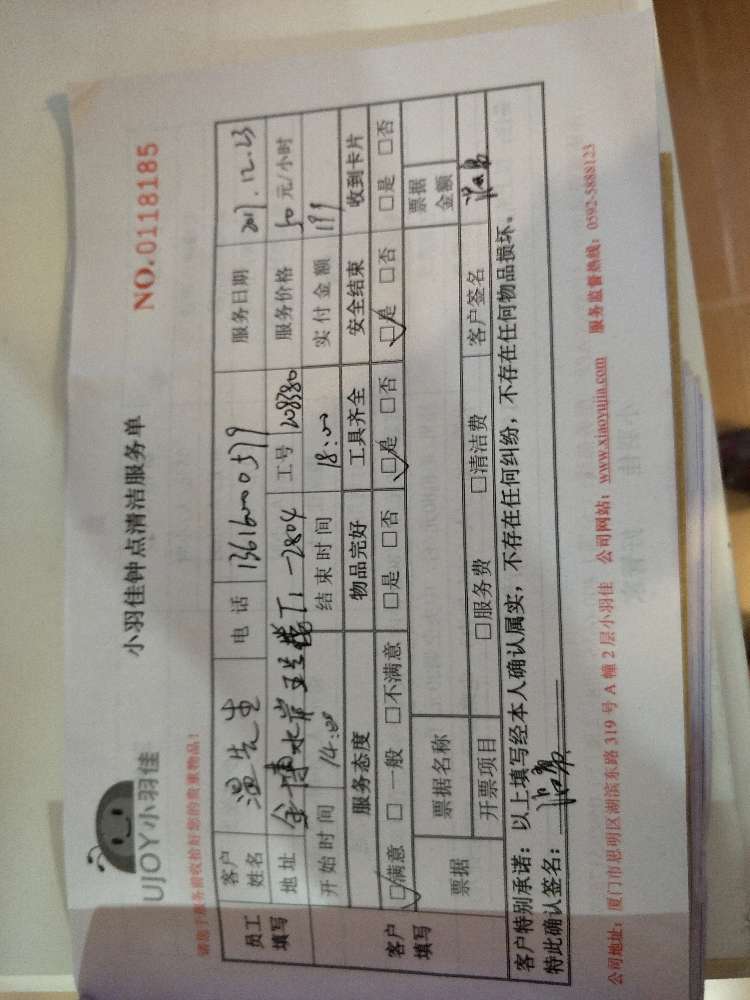 UJOY小羽佳
小羽佳钟点清洁服务单
NO.0118185
请您于服务前收拾好您的贵重物品!
员工填写
客户姓名 温先生 电话 服务日期 2017.12.23
地址 工号 208380 服务价格 50元/小时
开始时间 14:00 结束时间 18:00 实付金额 199
客户填写
服务态度 物品完好 工具齐全 安全结束 收到卡片
☑满意 □一般 □不满意 □是 □否 ☑是 □否 ☑是 □否 □是 □否
票据 票据名称 票据金额
开票项目 □服务费 □清洁费 客户签名
客户特别承诺:以上填写经本人确认属实,不存在任何纠纷,不存在任何物品损坏。
特此确认签名:
公司地址:厦门市思明区湖滨东路319号A幢2层小羽佳 公司网站:www.xiaoyujia.com 服务监督热线:0592-5888123